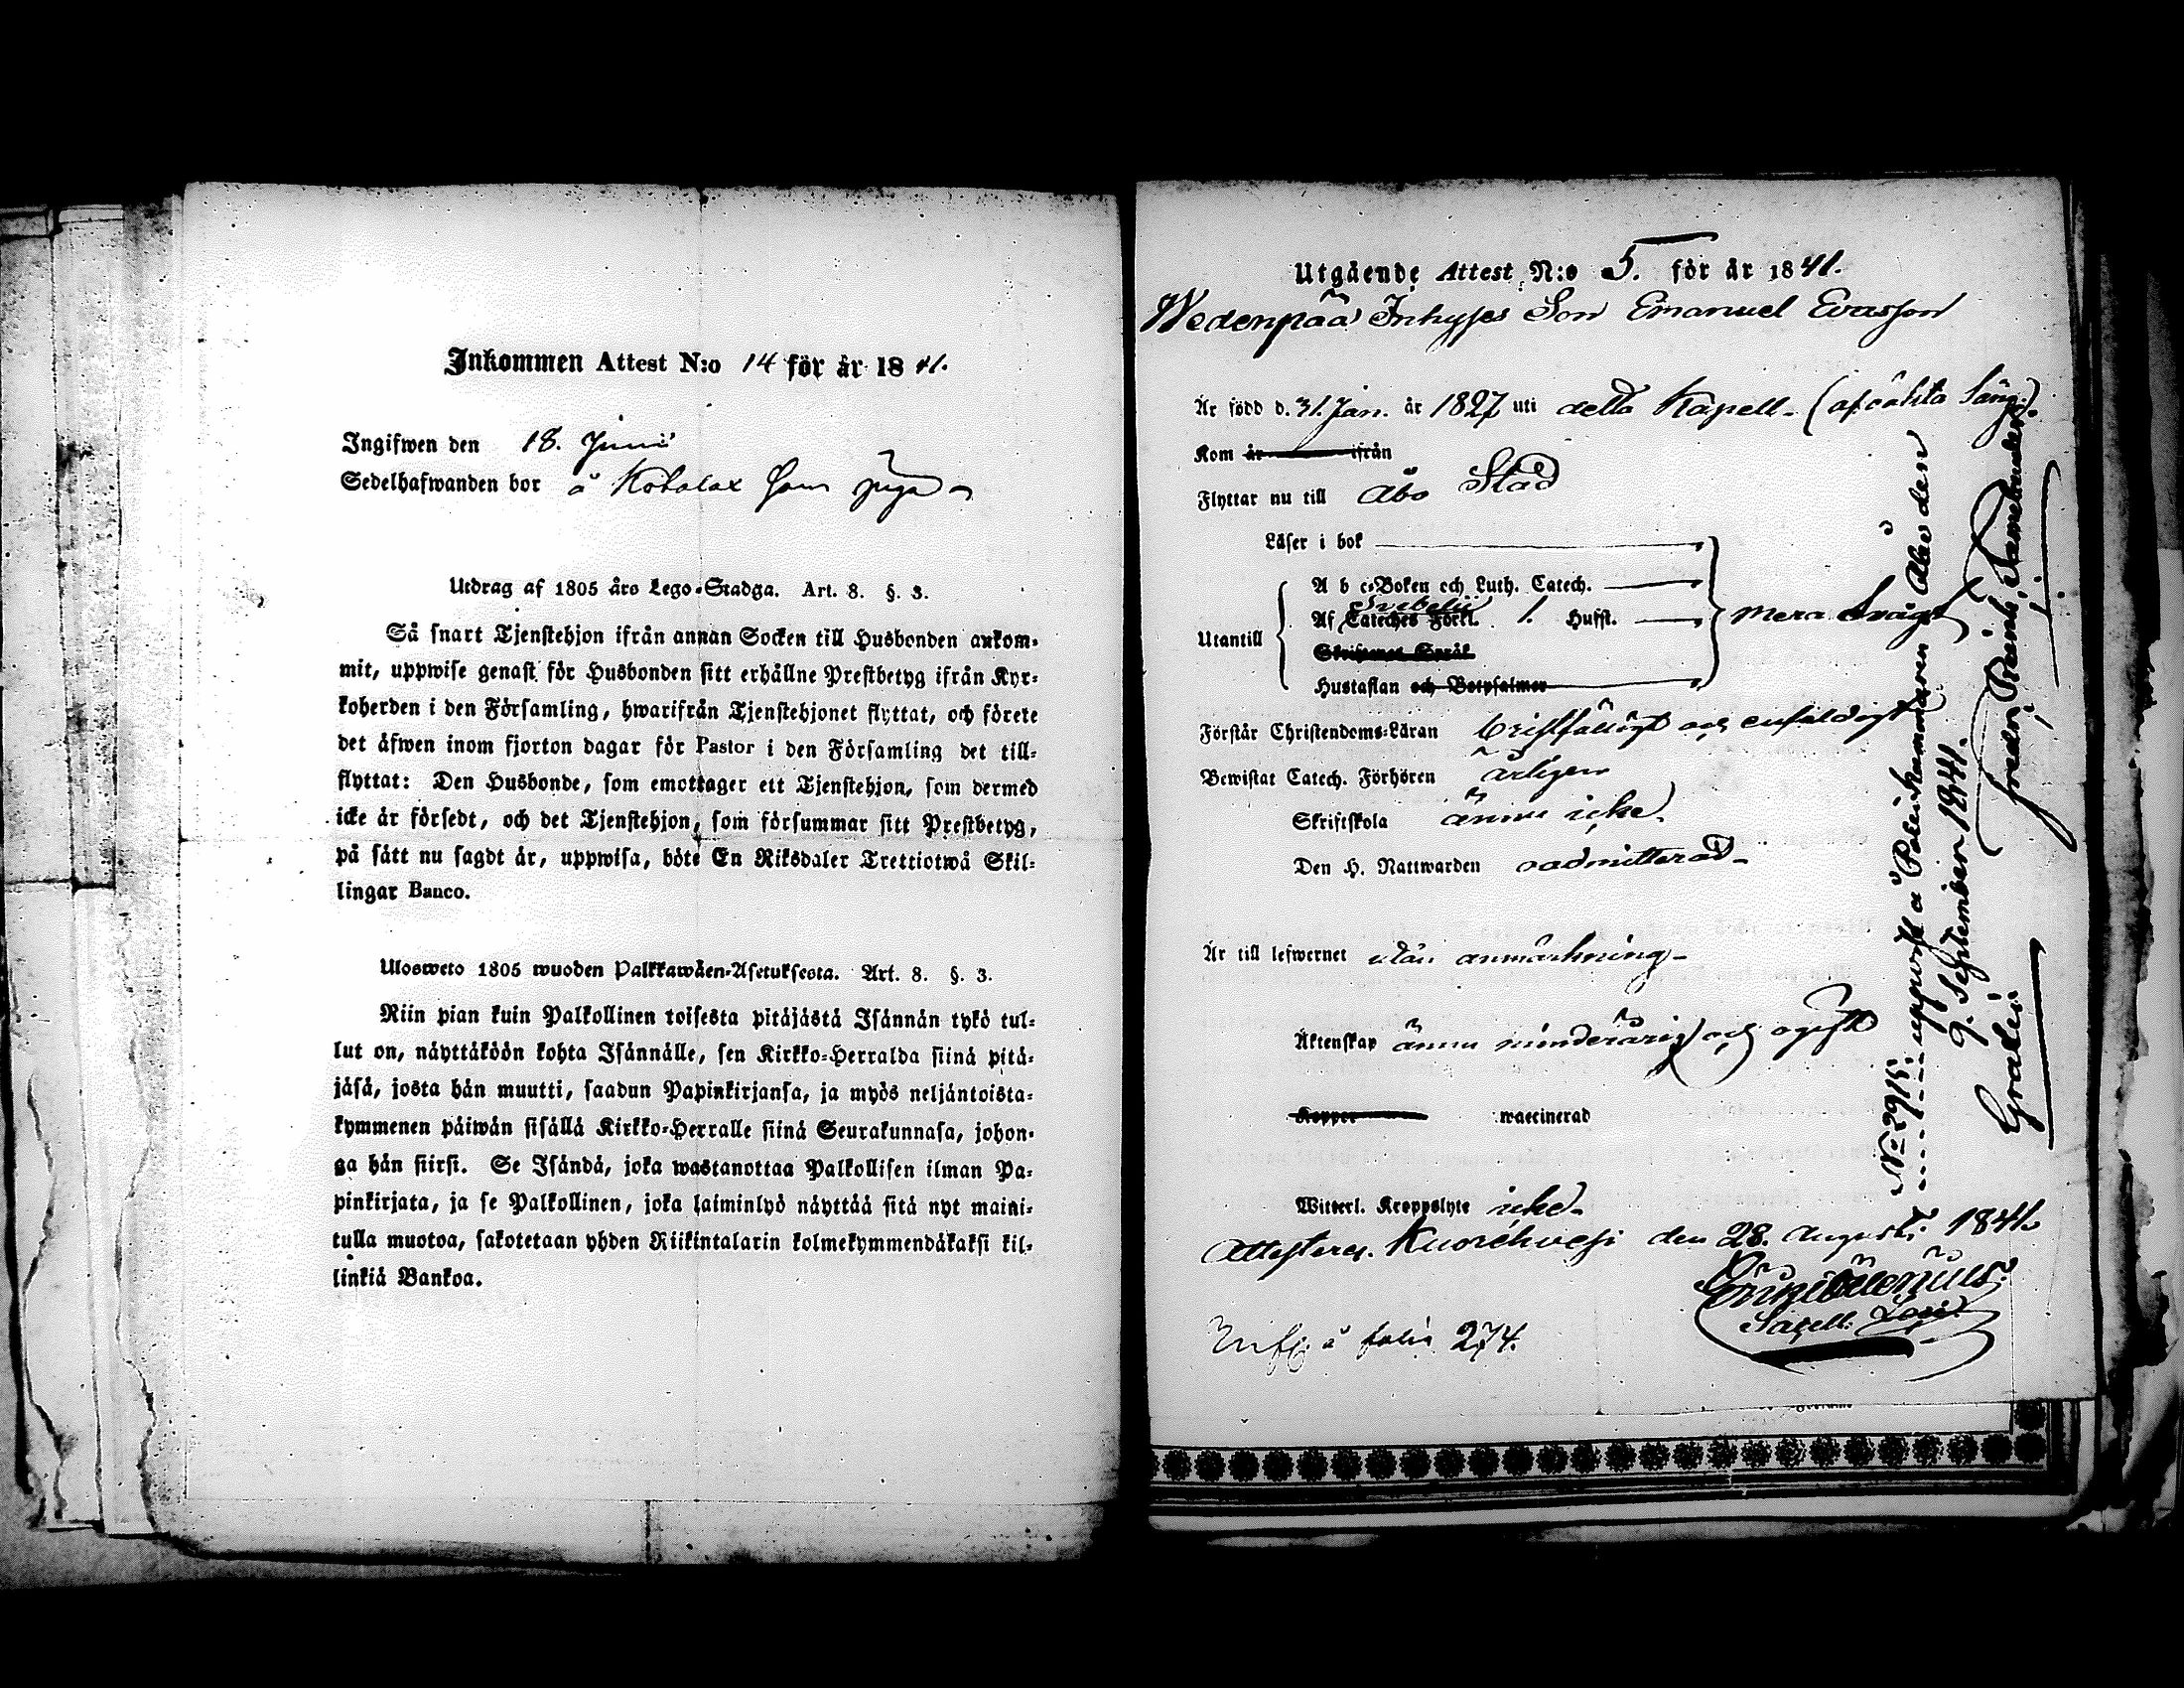 Inkommen Attest N:o 14 för år 1841.
Ingifwen den 18. Junii
Sedelhafwanden bor å Kobalax som piga
Utdrag af 1805 års Lego-Stadga. Art. 8. §. 3.
Så snart Tjenstehjon ifrån annan Socken till Husbonden ankom-
mit, uppwise genast för Husbonden sitt erhållne Prestbetyg ifrån Kyr-
koherden i den Församling, hwarifrån Tjenstehjonet flyttat, och förete
det äfwen inom fjorton dagar för Pastor i den Församling det till-
flyttat: Den Husbonde, som emottager ett Tjenstehjon, som dermed
icke är försedt, och det Tjenstehjon, som försummar sitt Prestbetyg,
på sätt nu sagdt är, uppwisa, böte En Riksdaler Trettiotwå Skil-
lingar Banco.
Ulosweto 1805 wuoden Palkkawäen-Asetuksesta. Art. 8. §. 3.
Niin pian kuin Palkollinen toisesta pitäjästä Isännän tykö tul-
lut on, näyttäköön kohta Isännälle, sen Kirkko-Herralda siinä pitä-
jäsä, josta hän muutti, saadun Papinkirjansa, ja myös neljäntoista-
kymmenen päiwän sisällä Kirkko-Herralle siinä Seurakunnasa, johon-
ga hän siirsi. Se Isändä, joka wastanottaa Palkollisen ilman Pa-
pinkirjata, ja se Palkollinen, joka laiminlyö näyttää sitä nyt maini-
tulla muotoa, sakotetaan yhden Riikintalarin kolmekymmendäkaksi kil-
linkiä Bankoa.
Utgående Attest N:o 5. för år 1841.
Wedenpää Inhyses Son Emanuel Evasson
Är född d. 31. Jan. år 1827 uti detta Kapell. (af oäkta Säng.)
Kom år ifrån
Flyttar nu till Åbo Stad
Läser i bok
A b c-Boken och Luth. Catech.
Svebelii
Utantill Af Cateches Förkl. 1. Hufst. mera Svagt
Skriftenes Språk
Hustaflan och Botpsalmer
Förstår Christendoms-Läran bristfälligt och enfaldigt
Bewistat Catech. Förhören årligen
Skriftskola ännu icke.
Den H. Nattwarden oadmitterad
Är till lefwernet utan anmärkning
Äktenskap ännu minderårig och ogift
Koppor waccinerad
Witterl. Kroppslyte icke.
Attesterar. Kuorehvesi den 28. Augusti 1841.
Sacell.
Infj. å folio 274.
No 2915. uppvist å Poliskammaren i Åbo den
9. September 1841.
Gratis.